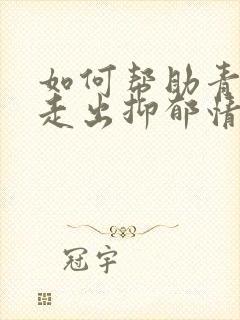 如何帮助青
走出抑郁情
冠宇